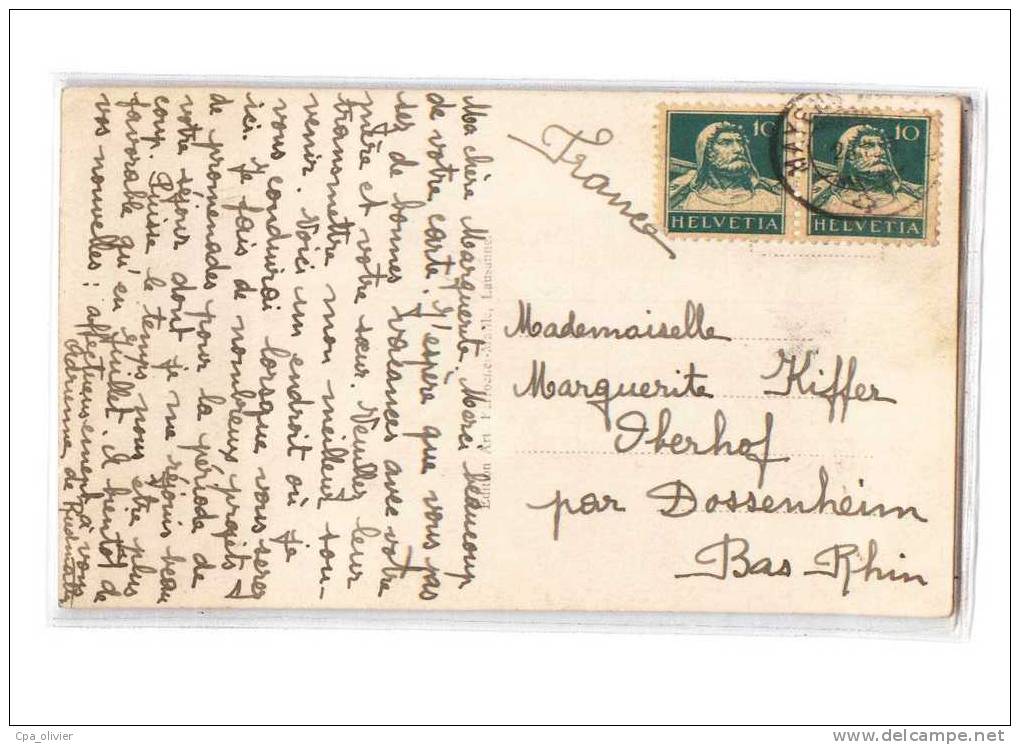 Ma chère Marguerite. Merci beaucoup
de votre carte. J'espère que vous pas
sez de bonnes vacances avec votre
père et votre sœur. Veuillez leur
transmettre mon meilleur sou-
venir. Voici un endroit où je
vous conduirai lorsque vous serez
ici. Je fais de nombreux projets
de promenades pour la période de
votre séjour dont je me réjouis beau
coup. Puisse le temps nous être plus
favorable qu'en juillet. A bientôt de
vos nouvelles: affectueusement à vous
Adrienne de
France
10
HELVETIA
10
HELVETIA
Mademoiselle
Marguerite Kiffer
Oberhof
par Dossenheim
Bas Rhin
Edition Art. Lausanne
Cpa_olivier
www.delcampe.net